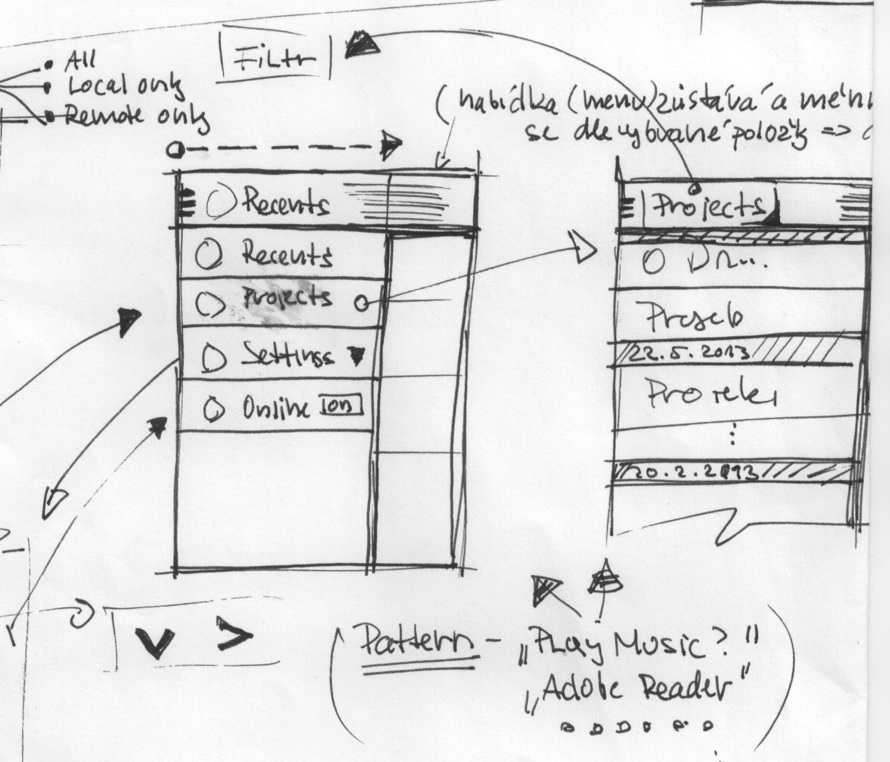 All
Filtr
Local only
Remote only
(nabídka (menu) zůstává a
se dle vybrané položky =>
Recents
Recents
Projects
Settings
Online on
Projects
22.5.2013
20.2.2013
Pattern - „Play Music?"
„Adobe Reader"